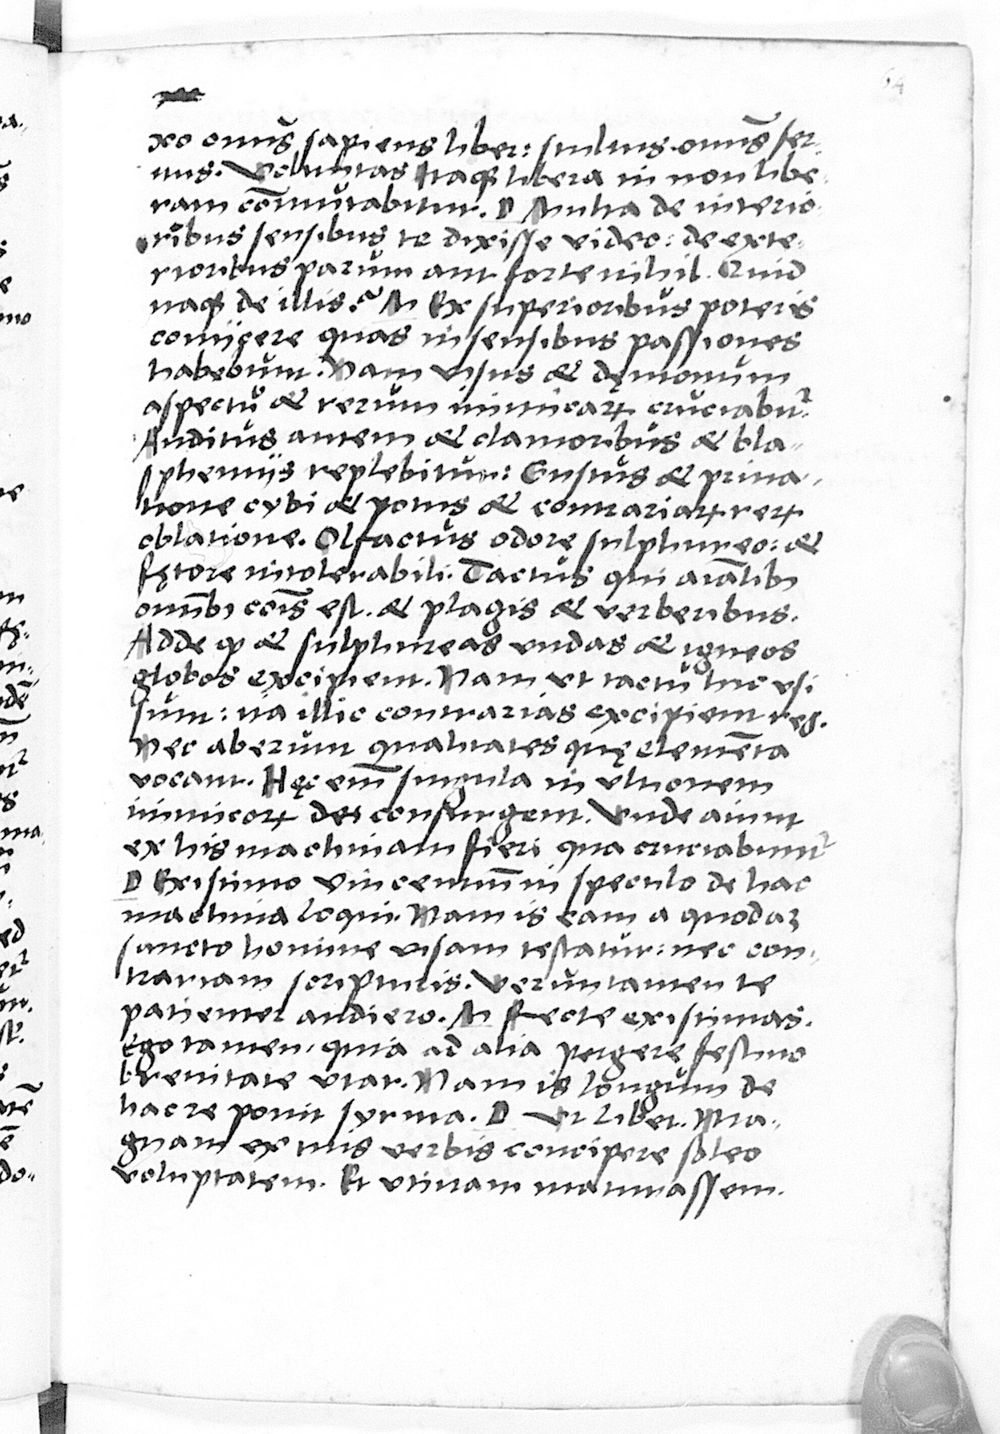 54
xo omīs sapiens liber: stultus omīs ser-
uus. Voluntas itaqꝫ libera in non libe-
ram cōmutabitur. D Multa de interio-
ribus sensibus te dixisse video: de exte-
rioribus parum aut forte nihil. Quid
naqꝫ de illis? M Ex superioribus poteris
coniicere quas in sensibus passiones
habebunt. Nam visus & dęmonum
aspectu & rerum inimicaꝝ cruciabit᷑.
Auditus autem & clamoribus & bla-
sphemijs replebitur: Gustus & priua-
tione cybi & potus & contrariaꝝ reꝝ
oblatione. Olfactus odore sulphureo: &
fętore intolerabili. Tactus qui aīalibꝰ
omībꝰ cōis est. & plagis & verberibus.
Adde ꝙ & sulphureas vndas & igneos
globos excipient. Nam vt tactu hic vsi
sunt: ita illic contrarias excipient reg.
Nec aberunt qualitates quę elementa
vocant. Hęc em̄ singula in vltionem
inimicoꝝ dei consurgent. Vnde aiunt
ex his machinam fieri qua cruciabunt᷑
D Existimo Vincentium in speculo de hac
machina loqui. Nam is eam a quodaꝫ
sancto homine visam testatur: nec con-
trariam scripturis. Veruntamen te
patienter audiero. M Recte existimas.
Ego tamen quia ad alia pergere festino
breuitate vtar. Nam is longum de
hac re ponit syrma. D Vt libet. Ma-
gnam ex tuis verbis concipere soleo
voluptatem. Et vtinam maturassem.